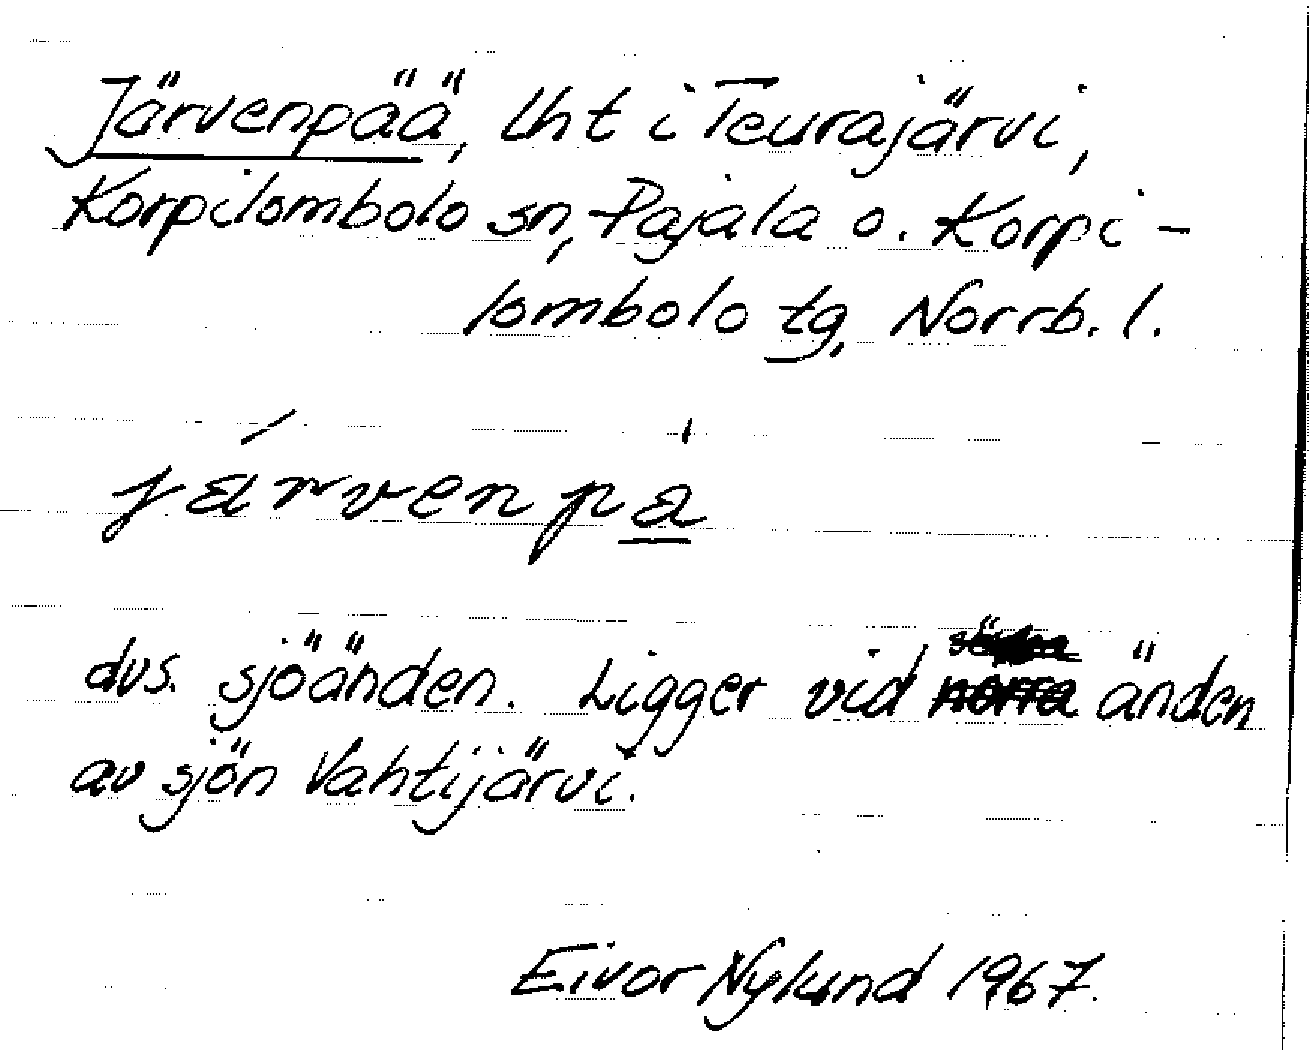 Järvenpää, lht i Teurajärvi,
Korpilombolo sn, Pajala o. Korpi-
lombolo tg, Norrb. l.
järvenpä
dvs. sjöänden. Ligger vid norra änden
av sjön Vahtijärvi.
Eivor Nylund 1967.